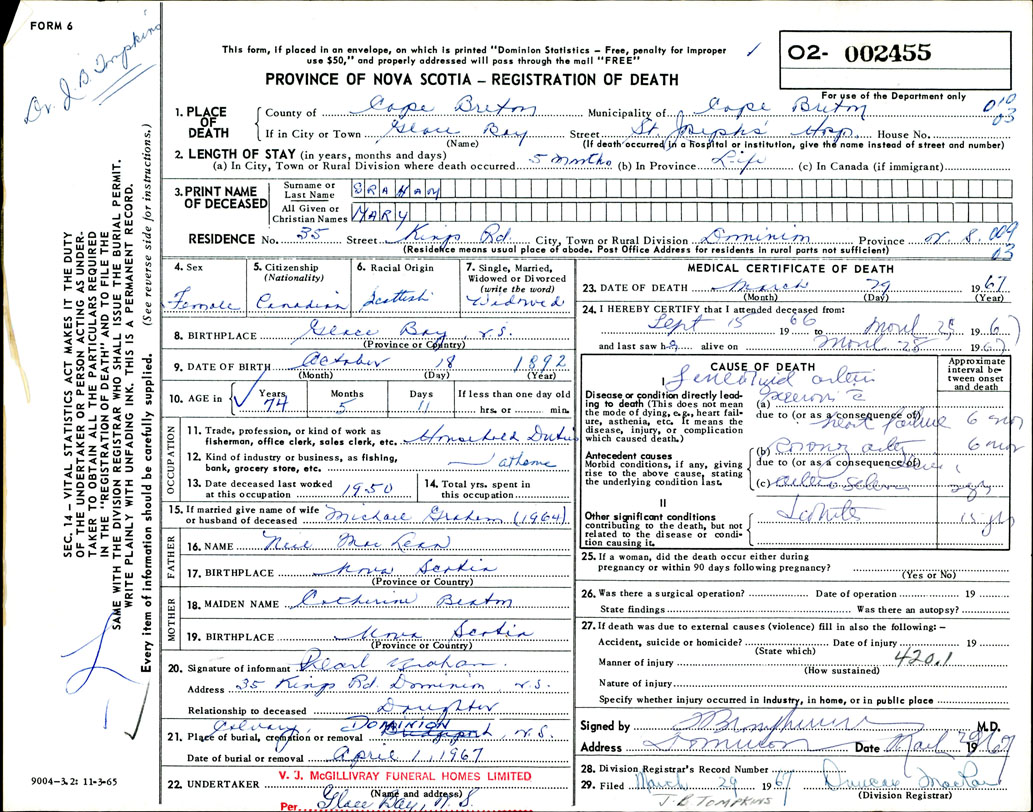 FORM 6
Dr. J. B. Tompkins
This form, if placed in an envelope, on which is printed "Dominion Statistics – Free, penalty for improper
use $50," and properly addressed will pass through the mail "FREE"
O2- 002455
PROVINCE OF NOVA SCOTIA – REGISTRATION OF DEATH
For use of the Department only
010
03
1. PLACE OF DEATH
County of Cape Breton Municipality of Cape Breton
If in City or Town Glace Bay Street St. Joseph's Hosp. House No.
(Name) (If death occurred in a hospital or institution, give the name instead of street and number)
2. LENGTH OF STAY (in years, months and days)
(a) In City, Town or Rural Division where death occurred 5 months (b) In Province Life (c) In Canada (if immigrant)
3. PRINT NAME OF DECEASED
Surname or Last Name GRAHAM
All Given or Christian Names MARY
RESIDENCE No. 35 Street Kings Rd. City, Town or Rural Division Dominion Province N. S. 009
03
(Residence means usual place of abode. Post Office Address for residents in rural parts not sufficient)
4. Sex Female
5. Citizenship (Nationality) Canadian
6. Racial Origin Scottish
7. Single, Married, Widowed or Divorced (write the word) Widowed
8. BIRTHPLACE Glace Bay, N.S.
(Province or Country)
9. DATE OF BIRTH October 18 1892
(Month) (Day) (Year)
10. AGE in Years 74 Months 5 Days 11 If less than one day old hrs. or min.
OCCUPATION
11. Trade, profession, or kind of work as
fisherman, office clerk, sales clerk, etc. Household Duties
12. Kind of industry or business, as fishing,
bank, grocery store, etc. at home
13. Date deceased last worked
at this occupation 1950
14. Total yrs. spent in
this occupation
15. If married give name of wife
or husband of deceased Michael Graham (1964)
FATHER
16. NAME Neil MacLean
17. BIRTHPLACE Nova Scotia
(Province or Country)
MOTHER
18. MAIDEN NAME Catherine Beaton
19. BIRTHPLACE Nova Scotia
(Province or Country)
20. Signature of informant Pearl Graham
Address 35 Kings Rd. Dominion, N.S.
Relationship to deceased Daughter
21. Place of burial, cremation or removal Calvary DOMINION, N.S.
Date of burial or removal April 1, 1967
22. UNDERTAKER V. J. McGILLIVRAY FUNERAL HOMES LIMITED
(Name and address)
Per Glace Bay, N.S.
MEDICAL CERTIFICATE OF DEATH
23. DATE OF DEATH March 29 1967
(Month) (Day) (Year)
24. I HEREBY CERTIFY that I attended deceased from:
Sept 15 1966 to March 28, 1967
and last saw her alive on March 28 1967
CAUSE OF DEATH
Approximate interval between onset and death
I
Disease or condition directly leading to death (This does not mean the mode of dying, e.g., heart failure, asthenia, etc. It means the disease, injury, or complication which caused death.)
(a)
due to (or as a consequence of)
heart failure 6 mos
Antecedent causes
Morbid conditions, if any, giving rise to the above cause, stating the underlying condition last.
(b) 6 mos
due to (or as a consequence of)
(c)
II
Other significant conditions
contributing to the death, but not related to the disease or condition causing it.
25. If a woman, did the death occur either during
pregnancy or within 90 days following pregnancy?
(Yes or No)
26. Was there a surgical operation? Date of operation 19
State findings Was there an autopsy?
27. If death was due to external causes (violence) fill in also the following: –
Accident, suicide or homicide? Date of injury 19
(State which)
Manner of injury 420.1
(How sustained)
Nature of injury
Specify whether injury occurred in industry, in home, or in public place
Signed by M.D.
Address Dominion Date 1967
28. Division Registrar's Record Number
29. Filed March 29 1967 Duncan MacRae
(Division Registrar)
J. B TOMPKINS
SEC. 14 – VITAL STATISTICS ACT MAKES IT THE DUTY
OF THE UNDERTAKER OR PERSON ACTING AS UNDER-
TAKER TO OBTAIN ALL THE PARTICULARS REQUIRED
IN THE "REGISTRATION OF DEATH" AND TO FILE THE
SAME WITH THE DIVISION REGISTRAR WHO SHALL ISSUE THE BURIAL PERMIT.
WRITE PLAINLY WITH UNFADING INK. THIS IS A PERMANENT RECORD.
Every item of information should be carefully supplied. (See reverse side for instructions.)
9004-3.2: 11-3-65